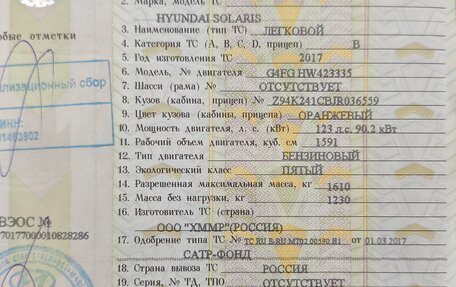 2. Марка, модель ТС
HYUNDAI SOLARIS
3. Наименование (тип ТС) ЛЕГКОВОЙ
4. Категория ТС (А, В, С, D, прицеп) В
5. Год изготовления ТС 2017
6. Модель, № двигателя G4FG HW423335
7. Шасси (рама) № ОТСУТСТВУЕТ
8. Кузов (кабина, прицеп) № Z94K241CBJR036559
9. Цвет кузова (кабины, прицепа) ОРАНЖЕВЫЙ
10. Мощность двигателя, л. с. (кВт) 123 л.с. 90.2 кВт
11. Рабочий объем двигателя, куб. см 1591
12. Тип двигателя БЕНЗИНОВЫЙ
13. Экологический класс ПЯТЫЙ
14. Разрешенная максимальная масса, кг 1610
15. Масса без нагрузки, кг 1230
16. Изготовитель ТС (страна)
ООО "ХММР"(РОССИЯ)
17. Одобрение типа ТС № ТС RU E-RU.MT02.00590.И1 от 01.03.2017
САТР-ФОНД
18. Страна вывоза ТС РОССИЯ
19. Серия, № ТД, ТПО ОТСУТСТВУЕТ
обые отметки
лизационный сбор
ИНН:
ВЭОС №